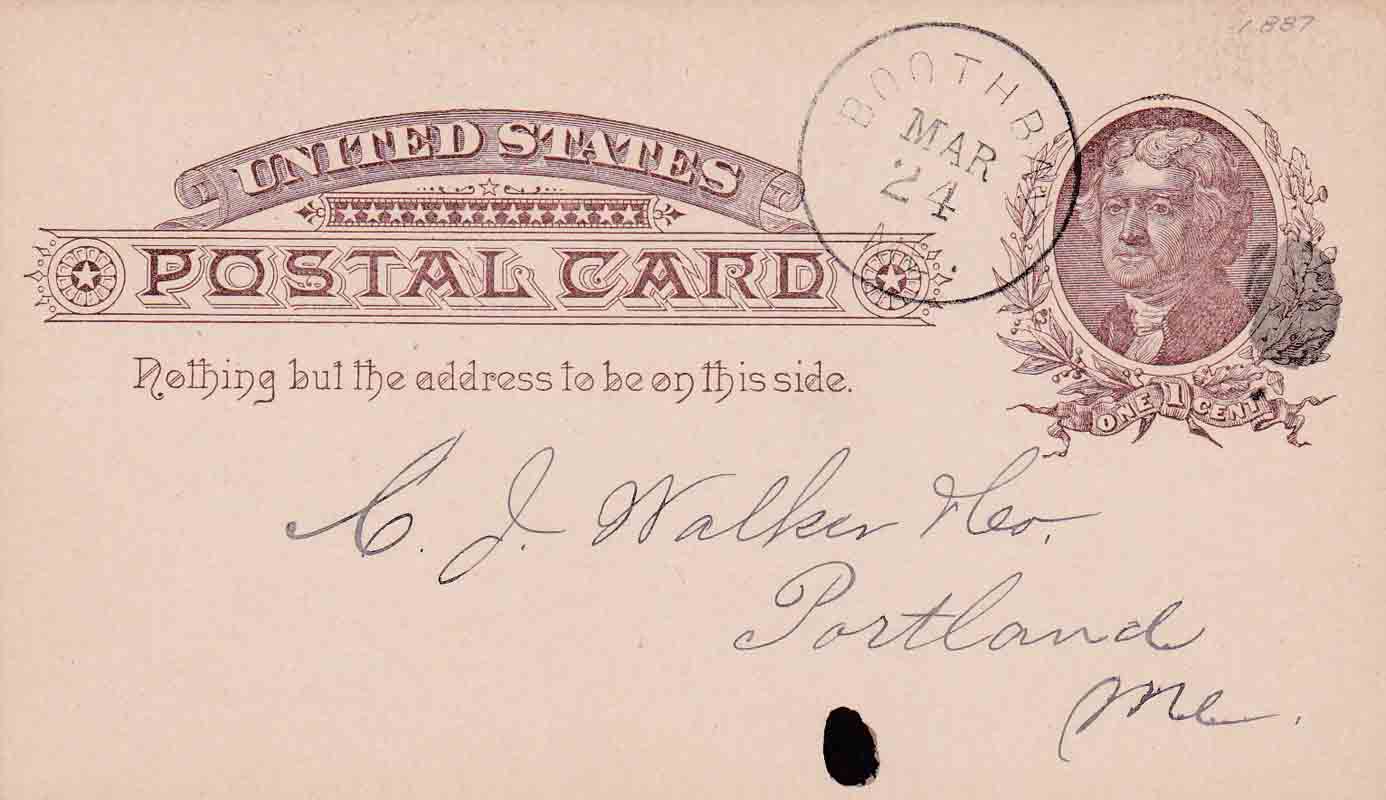 1887
UNITED STATES
POSTAL CARD
BOOTHBAY
MAR
24
Nothing but the address to be on this side.
ONE 1 CENT
C. J. Walker & Co.
Portland
Me.